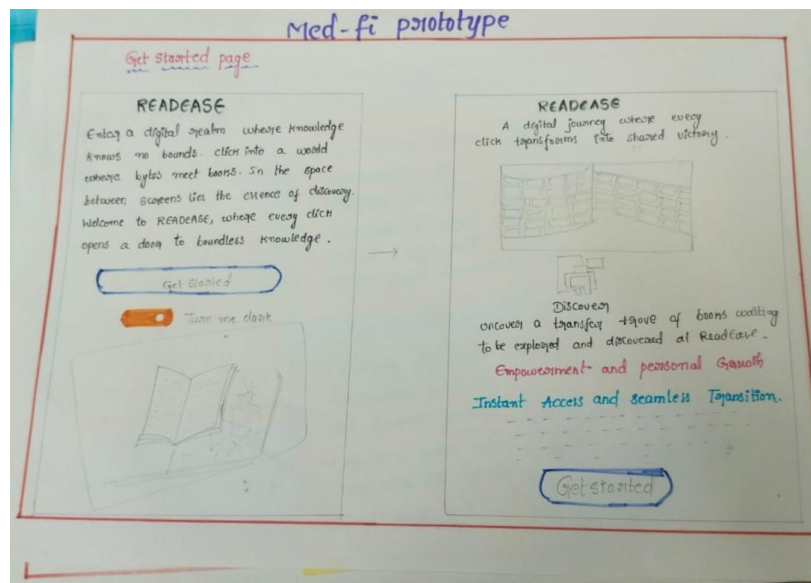 Med-fi prototype
Get started page
READEASE
Enter a digital realm where knowledge
knows no bounds. click into a world
where bytes meet books. in the space
between screens lies the essence of discovery.
Welcome to READEASE, where every click
opens a door to boundless knowledge.
Get started
Turn me dark
READEASE
A digital journey where every
click transforms into shared victory.
Discover
uncover a transfer trove of books waiting
to be explored and discovered at ReadEase.
Empowerment and personal Growth
Instant Access and seamless Transition.
Get started